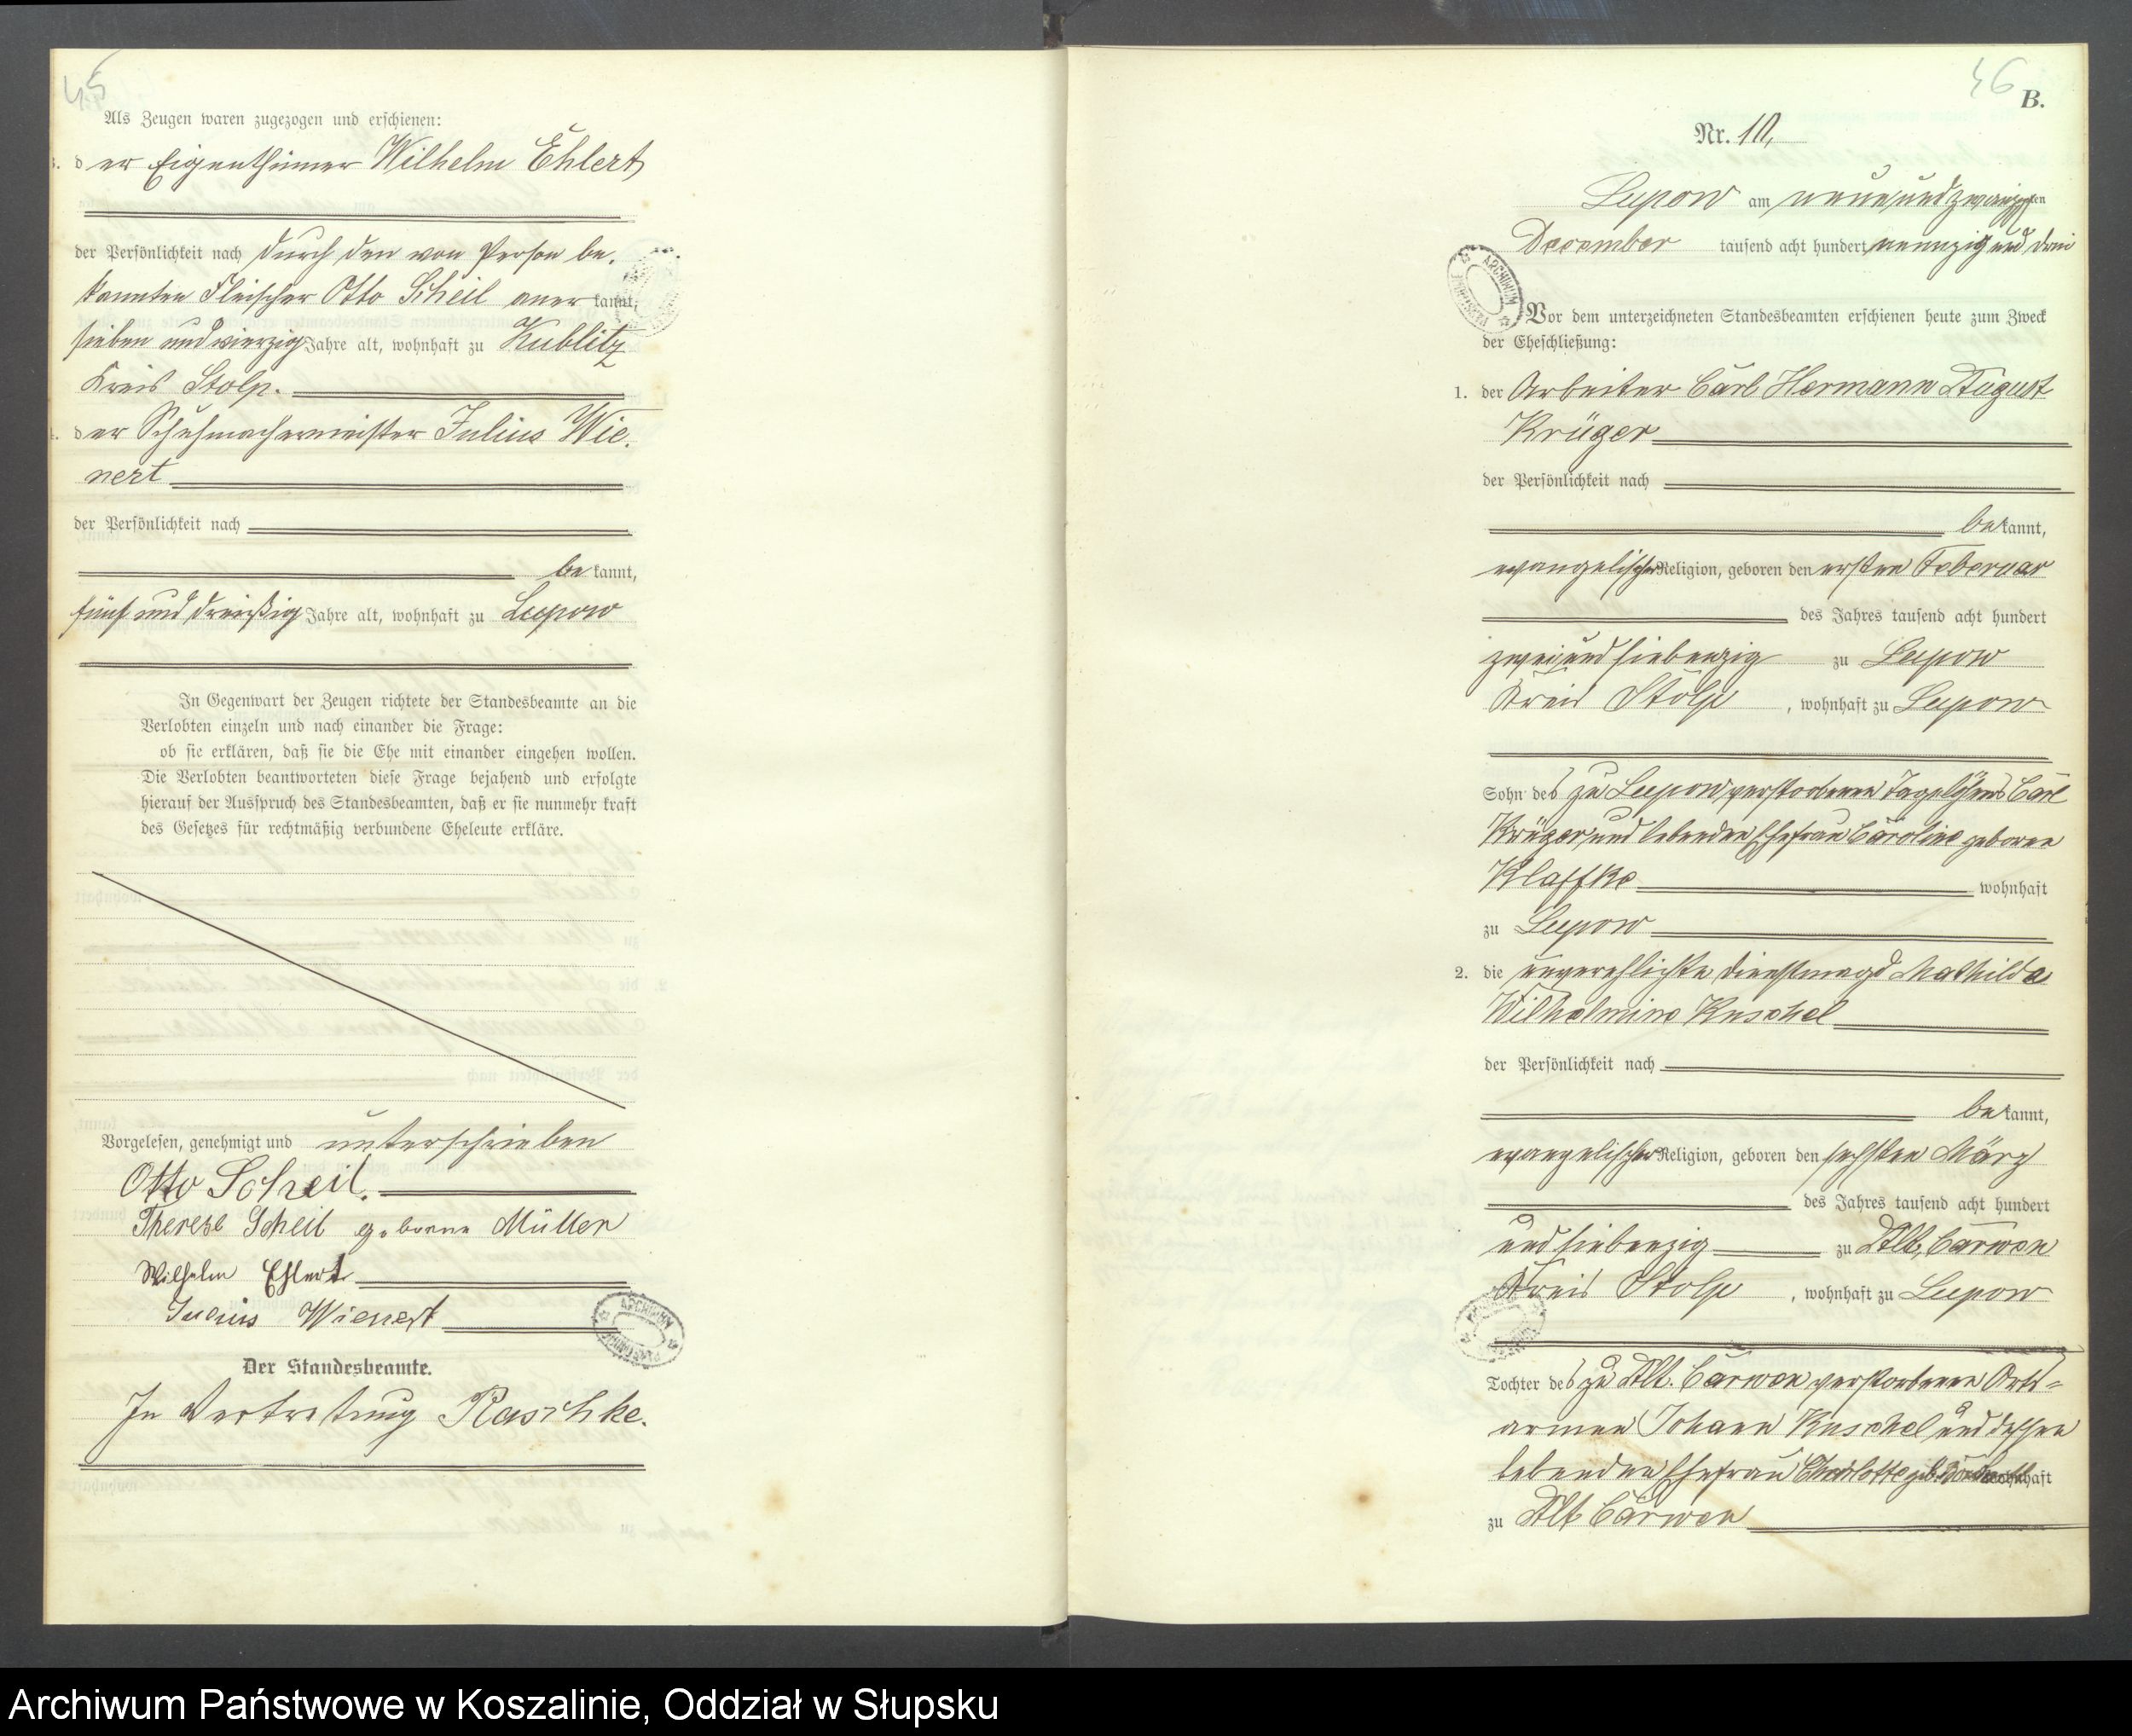 45
Als Zeugen waren zugezogen und erschienen:
3. der Eigenthümer Wilhelm Ehlert
der Persönlichkeit nach durch den von Person be-
kannten Fleischer Otto Scheil anerkannt,
sieben und vierzig Jahre alt, wohnhaft zu Kublitz
Kreis Stolp.
4. der Schuhmachermeister Julius Wie-
nert
der Persönlichkeit nach
bekannt,
fünf und dreißig Jahre alt, wohnhaft zu Lupow
In Gegenwart der Zeugen richtete der Standesbeamte an die
Verlobten einzeln und nach einander die Frage:
ob sie erklären, daß sie die Ehe mit einander eingehen wollen.
Die Verlobten beantworteten diese Frage bejahend und erfolgte
hierauf der Ausspruch des Standesbeamten, daß er sie nunmehr kraft
des Gesetzes für rechtmäßig verbundene Eheleute erkläre.
Vorgelesen, genehmigt und unterschrieben
Otto Scheil.
Therese Scheil geborene Müller
Wilhelm Ehlert
Julius Wienert
Der Standesbeamte.
In Vertretung Raschke.
46
B.
Nr. 10,
Lupow am neunundzwanzigsten
December tausend acht hundert neunzig und drei
Vor dem unterzeichneten Standesbeamten erschienen heute zum Zweck
der Eheschließung:
1. der Arbeiter Carl Hermann August
Krüger
der Persönlichkeit nach
bekannt,
evangelischer Religion, geboren den ersten Februar
des Jahres tausend acht hundert
zwei und siebenzig zu Lupow
Kreis Stolp, wohnhaft zu Lupow
Sohn des zu Lupow verstorbenen Tagelöhners Carl
Krüger und lebenden Ehefrau Caroline geborene
Klaffke wohnhaft
zu Lupow
2. die unverehlichte Dienstmagd Mathilde
Wilhelmine Kuschel
der Persönlichkeit nach
bekannt,
evangelischer Religion, geboren den sechsten März
des Jahres tausend acht hundert
und siebenzig zu Alt Carwen
Kreis Stolp, wohnhaft zu Lupow
Tochter des zu Alt Carwen verstorbenen Orts-
armen Johann Kuschel und dessen
lebenden Ehefrau Charlotte geb. wohnhaft
zu Alt Carwen
ARCHIWUM
Archiwum Państwowe w Koszalinie, Oddział w Słupsku